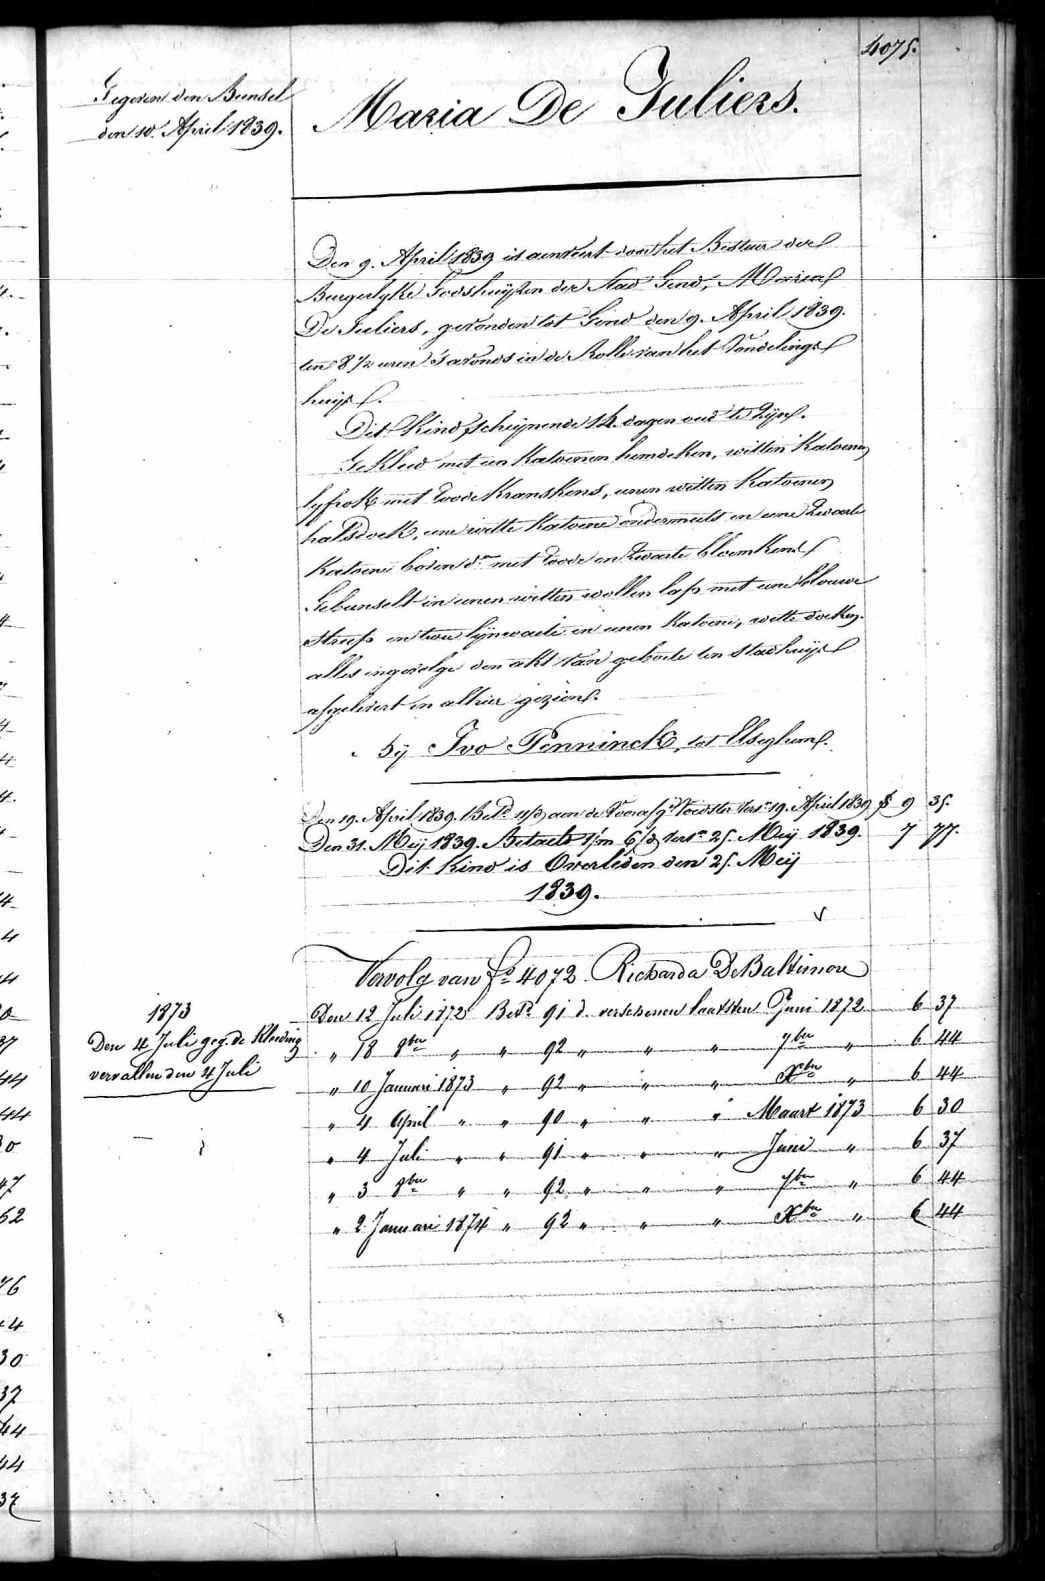 4075.
Gegeven den Bunsel
den 10. April 1839.
Maria De Juliers.
Den 9. April 1839 is aenveert door het Bestuur der
Burgerlyke Godshuyzen der Stad Gend, Maria
De Juliers, gevonden tot Gend den 9. April 1839.
ten 8 1/2 uren s'avonds in de Rolle van het Vondelings
huys.
Dit Kind scheynende 14 dagen oud te Zyn.
Gekleed met een Katoenen hemdeken, witten Katoenen
lyfrok met roode Kranskens, eenen witten Katoenen
halsdoek, eene witte Katoene ondermuts en eene Zwarte
Katoene boven dn met roode en Zwarte bloemkens
Gebunselt in eenen witten wollen lap met eene blauwe
streep en twee lynwaete en eenen Katoene, witte doeken.
alles ingevolge den akt van geboorte ten stadhuyse
afgelevert en alhier gezien.
by Ivo Penninck, tot Elseghem.
Den 19. April 1839. Bet. d aen de Voorsg. Voedster vers. 19. April 1839 $ 9 35.
Den 31. Mey 1839. Betaelt 1/m 6/d vers. 25. Mey 1839. 7 77.
Dit Kind is Overleden den 25. Mey
1839.
Vervolg van fo 4072. Richarda De Baltimore
Den 12 Juli 1872 Bet. 91 d. verschenen laatsten Juni 1872 6 37
" 18 8ber " " 92 " " " 7ber " 6 44
" 10 Januari 1873 " 92 " " " Xber " 6 44
" 4 April " " 90 " " " Maart 1873 6 30
" 4 Juli " " 91 " " " Juni " 6 37
" 3 8ber " " 92 " " " 7ber " 6 44
" 2 Januari 1874 " 92 " " " Xber " 6 44
1873
Den 4 Juli geg. de Kleeding
vervallen den 4 Juli